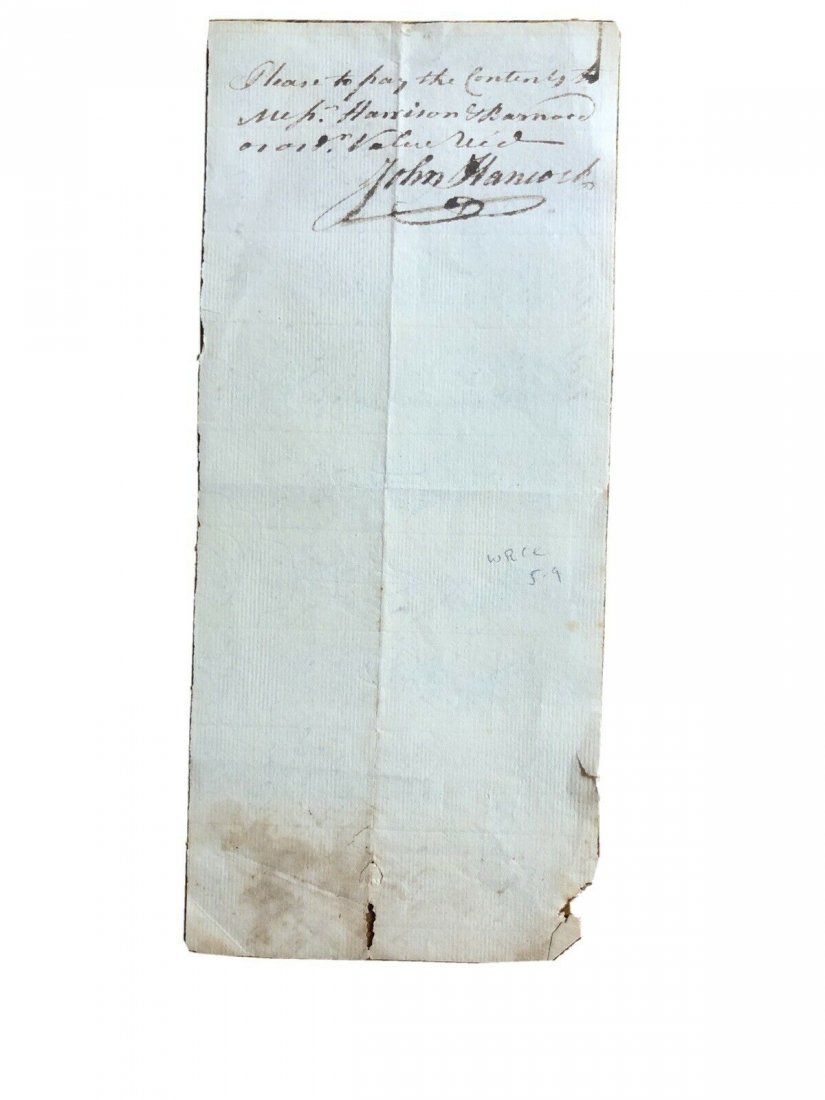 Please to pay the Contents to
Messrs. Harrison & Barnard
or ordr. Value Rec'd
John Hancock
WRCC
5-9